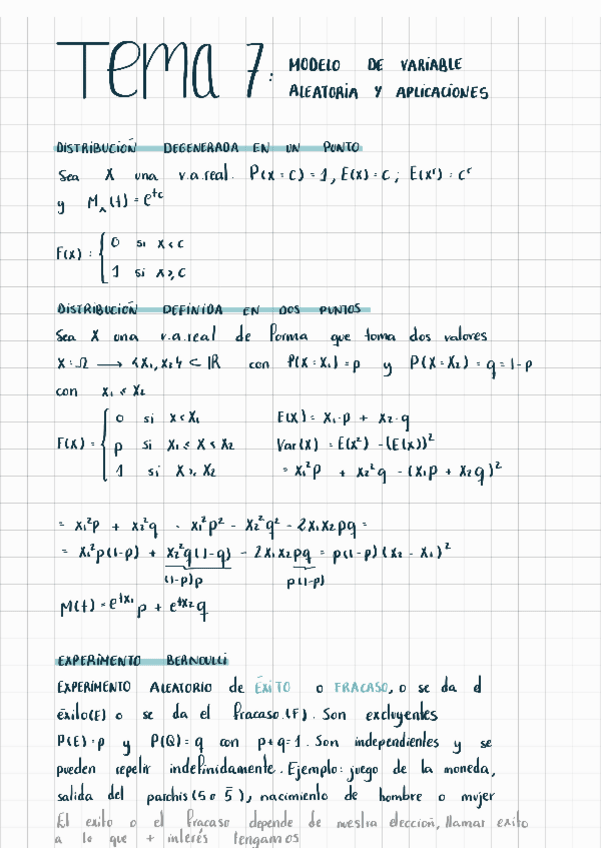 Tema 7: MODELO DE VARIABLE
ALEATORIA Y APLICACIONES
DISTRIBUCIÓN DEGENERADA EN UN PUNTO
Sea X una v.a.real. P(X=c)=1, E(X)=c; E(Xʳ)=cʳ
y Mₓ(t)=eᵗᶜ
F(x)= { 0 si x<c
1 si x≥c
DISTRIBUCIÓN DEFINIDA EN DOS PUNTOS
Sea X una v.a.real de forma que toma dos valores
X:Ω → {x₁,x₂} ⊂ ℝ con P(X=x₁)=p y P(X=x₂)=q=1-p
con x₁<x₂
F(x)= { 0 si x<x₁ E(X)= x₁·p + x₂·q
p si x₁≤x<x₂ Var(X)=E(x²)-(E(x))²
1 si x≥x₂ = x₁²p + x₂²q - (x₁p + x₂q)²
= x₁²p + x₂²q - x₁²p² - x₂²q² - 2x₁x₂pq =
= x₁²p(1-p) + x₂²q(1-q) - 2x₁x₂pq = p(1-p)(x₂-x₁)²
(1-p)p p(1-p)
M(t)=eᵗˣ¹p + eᵗˣ²q
EXPERIMENTO BERNOULLI
EXPERIMENTO ALEATORIO de ÉXITO o FRACASO, o se da el
éxito(E) o se da el fracaso (F). Son excluyentes
P(E)=p y P(Q)=q con p+q=1. Son independientes y se
pueden repetir indefinidamente. Ejemplo: juego de la moneda,
salida del parchis (5 o 5̄), nacimiento de hombre o mujer
El exito o el fracaso depende de nuestra eleccion, llamar exito
a lo que + interés tengamos